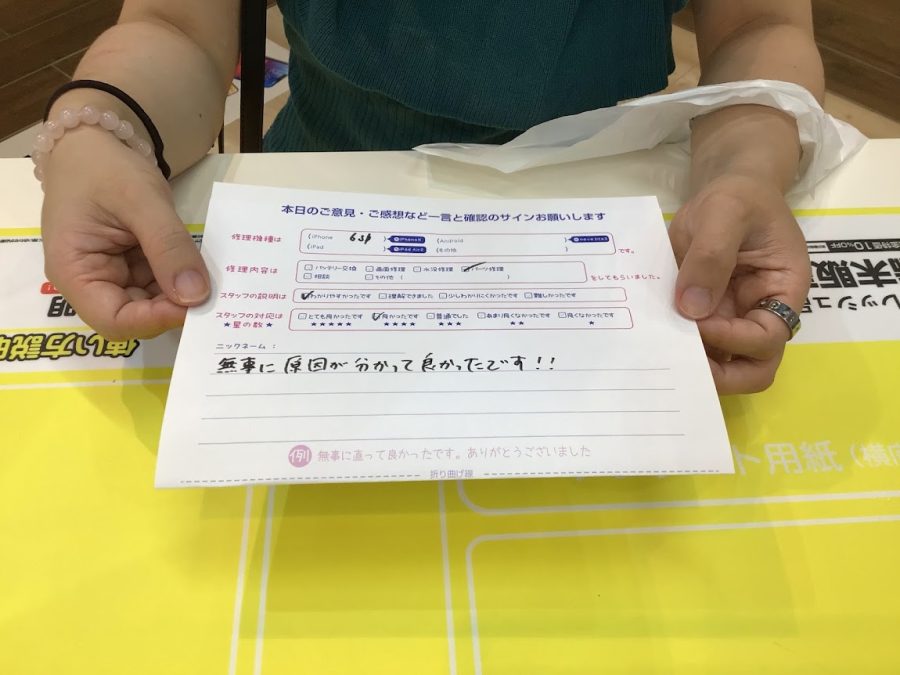 本日のご意見・ご感想など一言と確認のサインお願いします
修理機種は (iPhone 6sp ) (Android )
(iPad ) (その他 ) です。
修理内容は バッテリー交換 画面修理 水没修理 パーツ修理
相談 その他 ( ) をしてもらいました。
スタッフの説明は わかりやすかったです 理解できました 少しわかりにくかったです 難しかったです
スタッフの対応は とても良かったです 良かったです 普通でした あまり良くなかったです 良くなかったです
★星の数★ ★★★★★ ★★★★ ★★★ ★★ ★
ニックネーム:
無事に原因が分かって良かったです!!
例 無事に直って良かったです。ありがとうございました
折り曲げ線
使い方説明
端末販
レッシュ
ト用紙(横